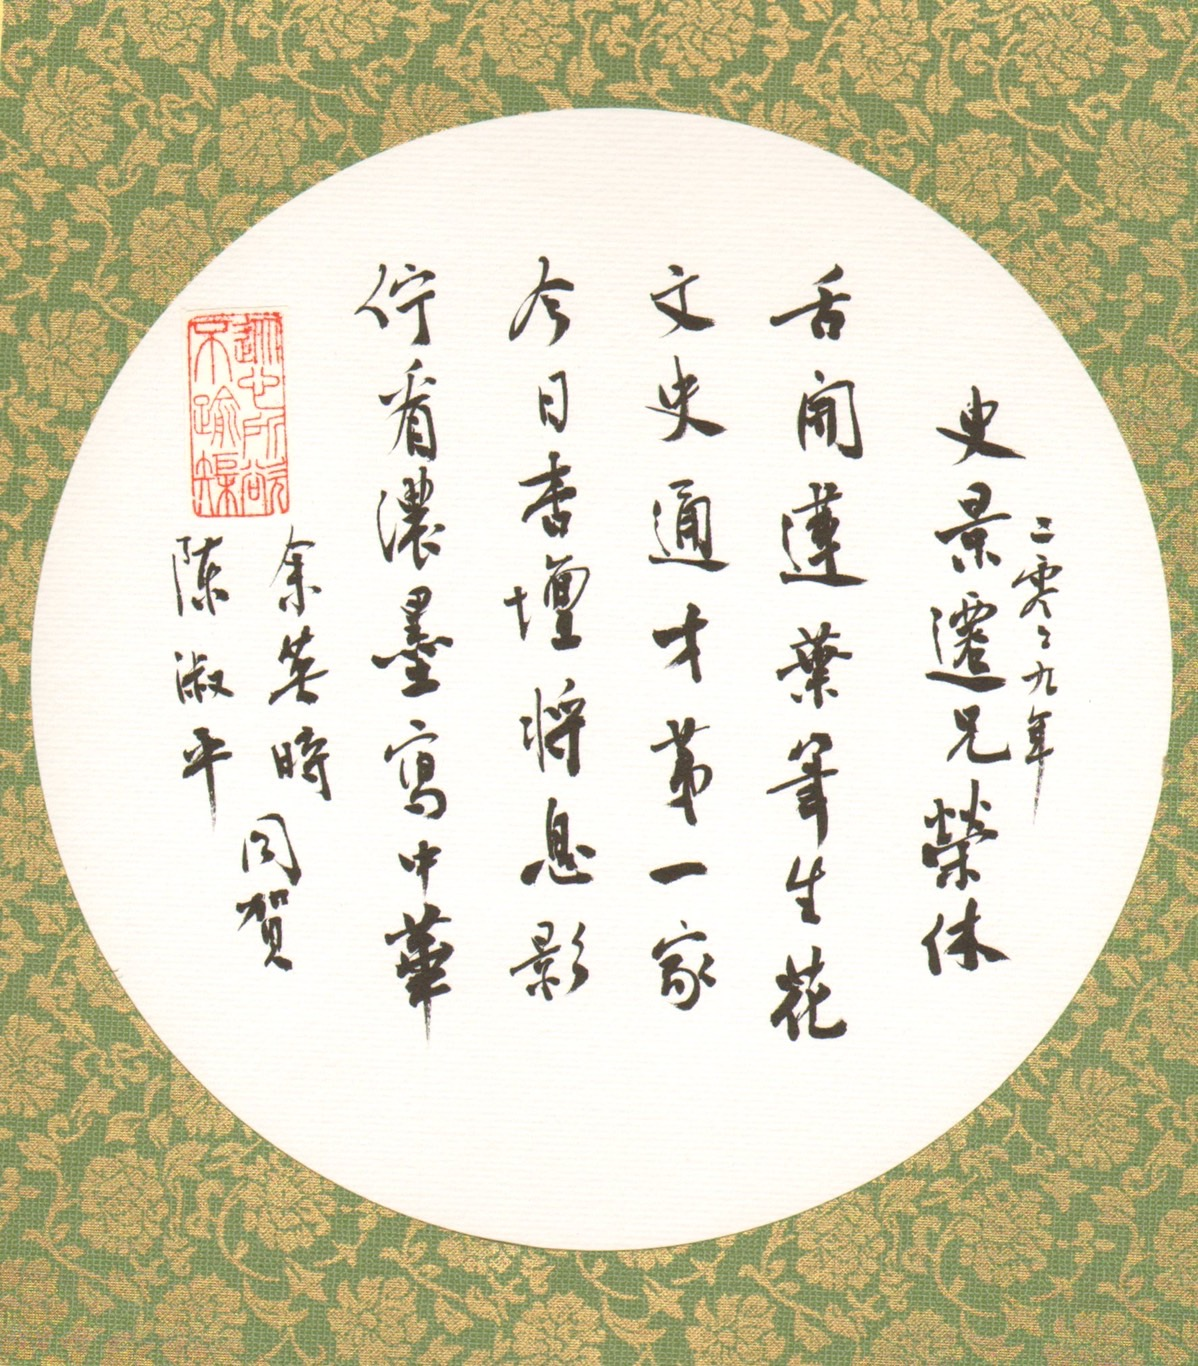 二零〻九年
史景遷兄榮休
舌開蓮葉筆生花
文史通才第一家
今日杏壇將息影
佇看濃墨寫中華
余英時
陳淑平
同賀
從心所欲
不踰榘